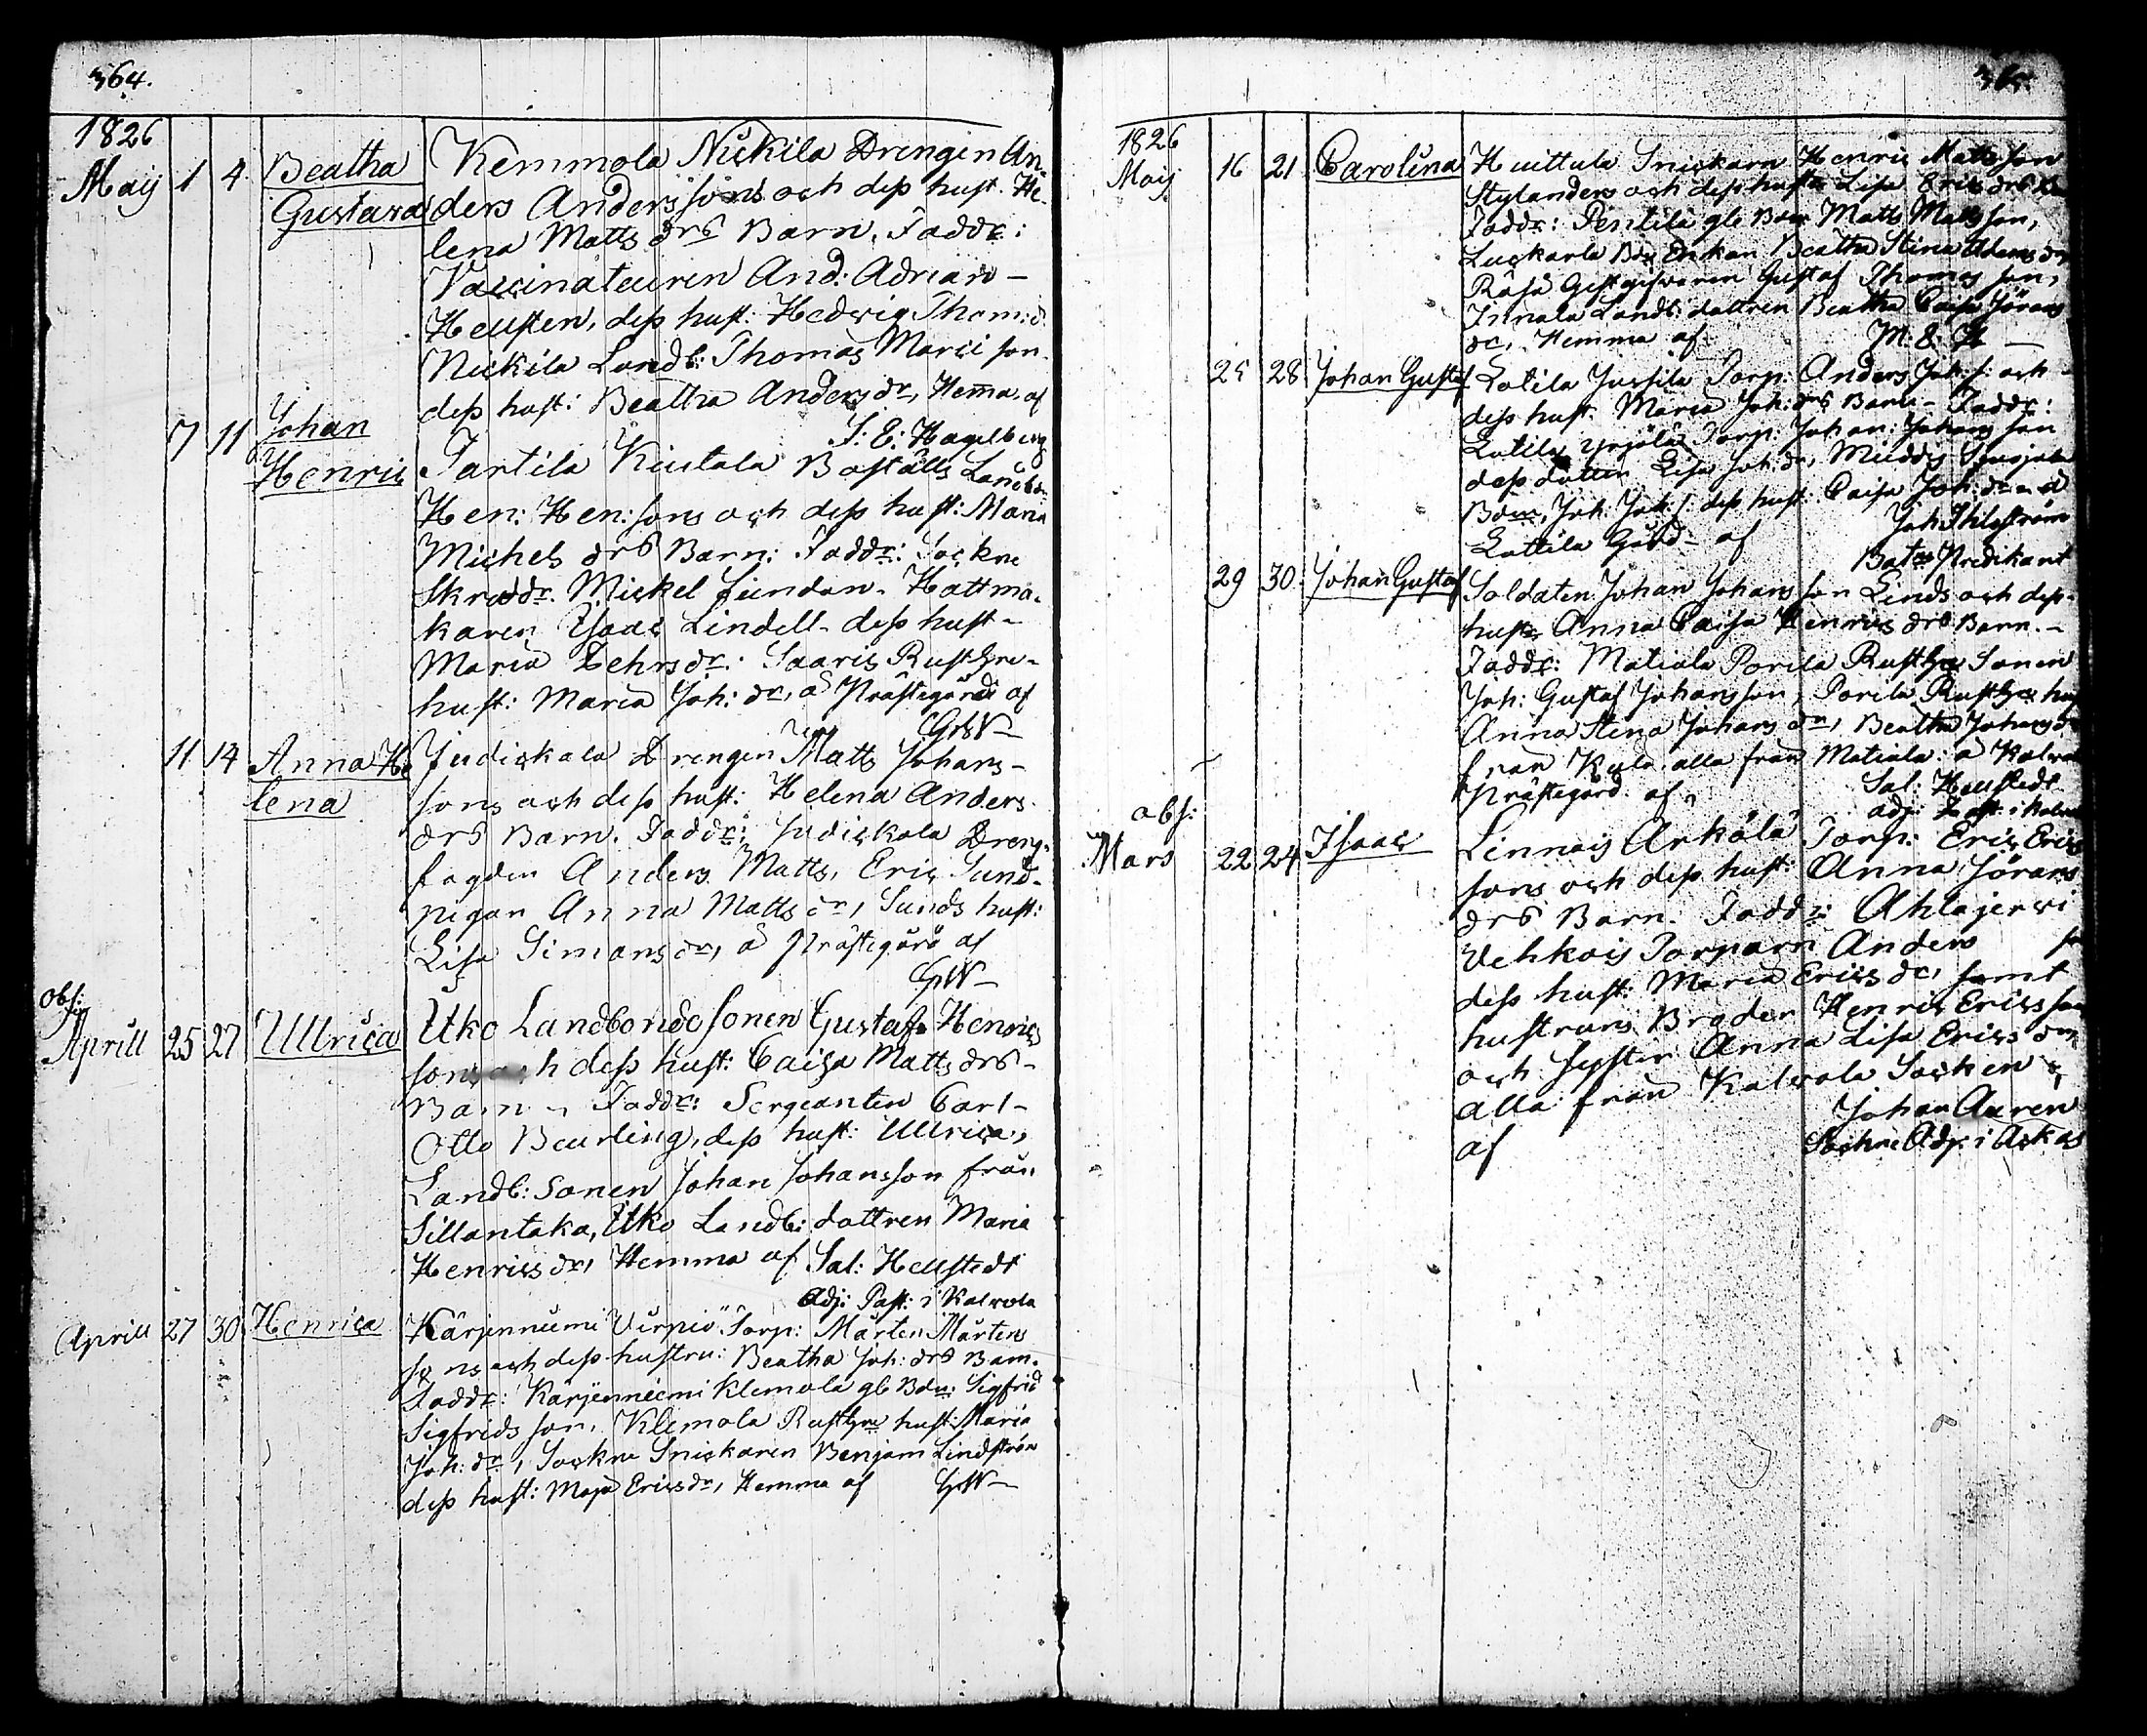 364.
1826
Maij 1 4. Beatha Kemmola Nickila Drengin An-
Gustava ders Andersions och dess hust. He-
lena Matts drs Barn. Faddr:
Vaccinateuren And: Adrian -
Hellsten, dess hust: Hedvig Thom: d.
Nickila Landb: Thomas Marci son
dess hust: Beatha Anders dr, Hema. af
S: E: Hagelberg
7 11 Johan
Henric Partila Kiutala Boställs Landb.
Hen: Hen: sons och dess hust: Maria
Michels drs Barn: Faddr: Sockne
Skraddr. Mickel Lindon. Hattma-
karen Isaac Lindell - dess hust -
Maria Lehrsdr: Saaris Rusth:re -
hust: Maria Joh: dr, å Prästegård af
GW -
11 14 Anna He Judickala Drengen Matts Johans -
lena sons och dess hust: Helena Anders
drs Barn. Faddr: Judickala Dreng-
fogden Anders Matts, Eric Sund -
pigan Anna Matts dr, Sunds hust:
Lisa Simans dr, å Prästegård af
GW -
Obs:
Aprill 25 27 Ullrica Uko Landbonde sonen Gustaf Henrics
sons och dess hust: Caisa Matts drs -
Barn - Faddr: Sergeanten Carl -
Otto Beurling, dess hust: Ullrica,
Landb: Sonen Johan Johansson från
Sillantaka, Uko Landb: dottren Maria
Henrics dr, Hemma af Sal: Hellstedt
Adj: Past: i Kalvola
Aprill 27 30 Henrica Kärjenniemi Virpiö Torp: Mårten Mårtens
sons och dess hustru: Beatha Joh: drs Barn.
Faddr: Kärjenniemi Klemola gb Bdn: Sigfrid
Sigfrids son, Klemola Rusth:re hust: Maria
Joh: dr, Sockne Snickaren Benjam Lindström
dess hust: Maja Ericsdr, Hemma af GW -
1826
Maij 16 21 Carolina Huittula Snickarn Henric Matts son
Stylanders och dess hust: Lisa Erics drs
Faddr: Pentila gb Bdn Matts Matts son,
Luckarla Bdn Enkan Beatha Stina Adams dr
Råsa Gestgifvaren Gustaf Thomas son,
Innala Landb: dottren Beatha Caisa Görans
dr, Hemma af M: E: H -
25 28 Johan Gustaf Lotila Jussila Torp: Anders Joh: s: och
dess hust: Maria Joh: drs Barn - Faddr:
Lotila Yrjölä Torp: Johan: Johans son
dess dotter Lisa Joh: dr,
Bdn, Joh: Joh: s: dess hust: Caisa Joh: dr
Lottila Gård - af Joh Ihlström
Bat:s Predikant
29 30 Johan Gustaf Soldaten Johan Johans son Linds och dess
hust: Anna Caisa Henrics drs Barn. -
Faddr: Matiala Porila Rusth:re Sonen
Joh: Gustaf Johansson, Porila Rusth:re hust
Anna Stina Johans dr, Beatha Johans dr
från Kula alla från Matiala: å Kalvola
Prästegård af, Sal: Hellstedt
adj: Past: i Kalvola
obs:
Mars 22 24 Isaac Linnais Arkölä Torp: Eric Erics
sons och dess hust: Anna Görans
drs Barn. Faddr: Ahlajerwi
Vehkois Torparn Anders
dess hust: Maria Erics dr, samt
hustruns Broder Henric Ericsson
och Syster Anna Lisa Erics dr,
alla från Kalvola Socken
af Johan Auren
Sockne Adj: i Ackas